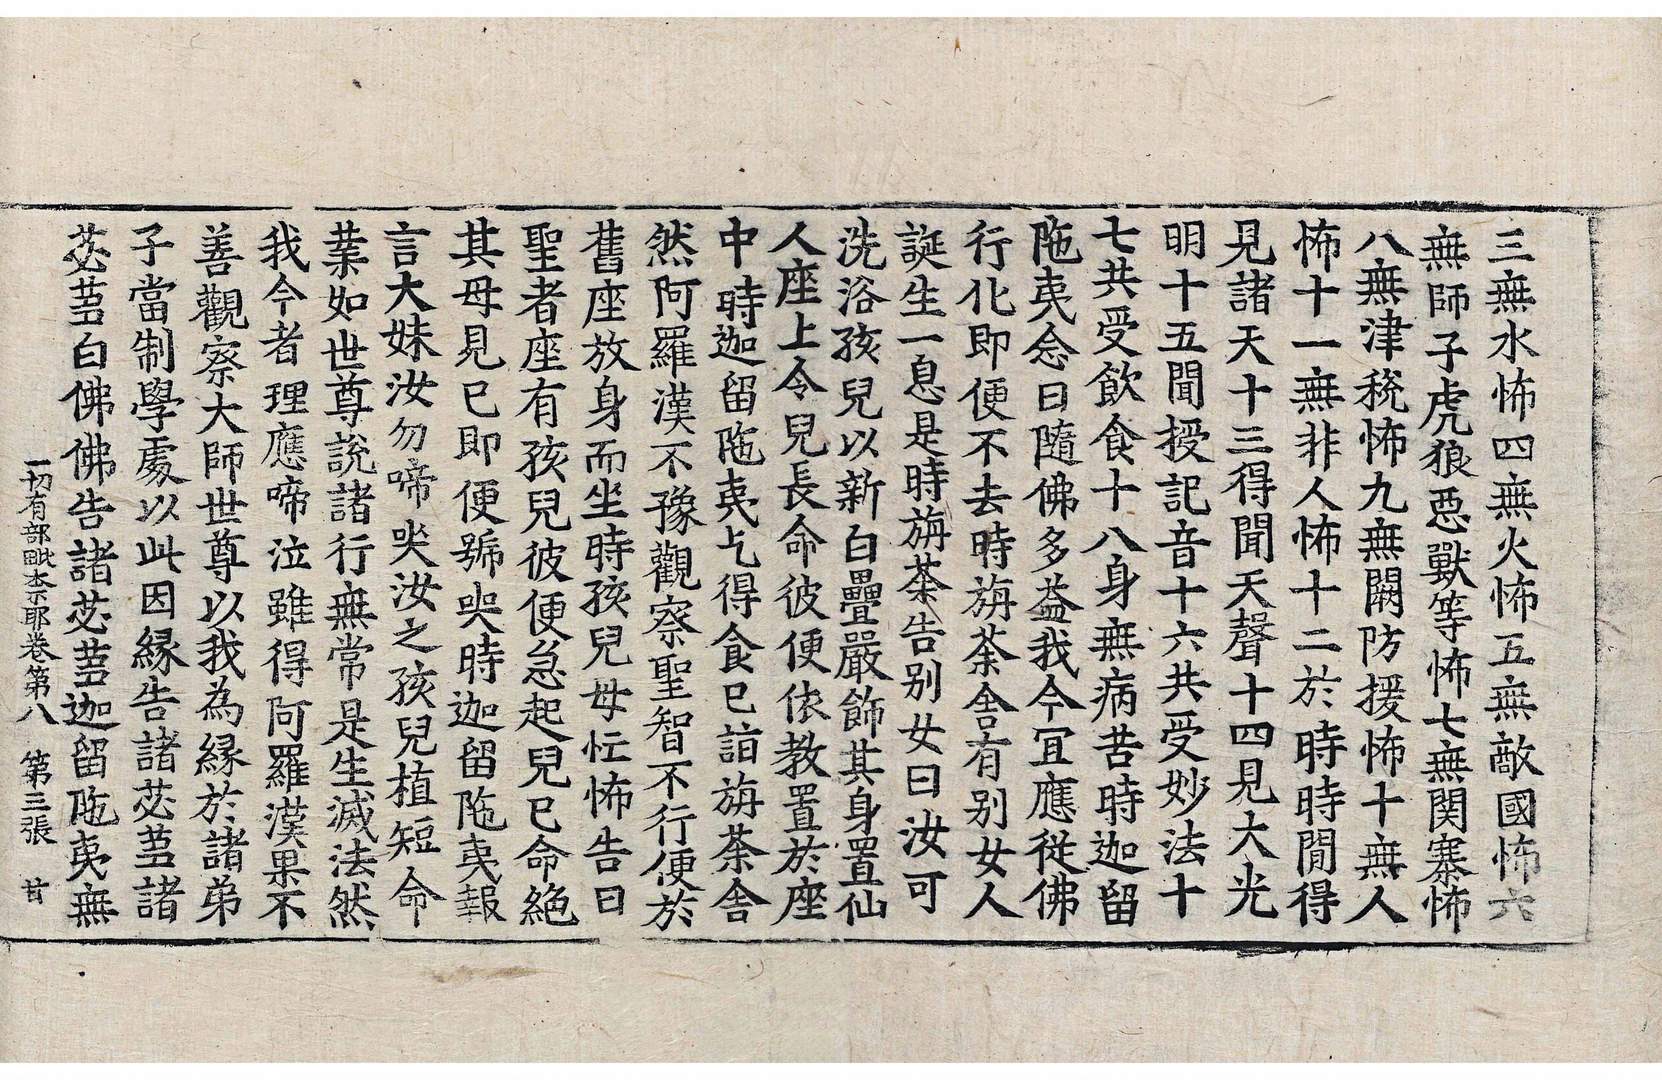 三無水怖四無火怖五無敵國怖六
無師子虎狼惡獸等怖七無関塞怖
八無津稅怖九無闕防援怖十無人
怖十一無非人怖十二於時時閒得
見諸天十三得聞天聲十四見大光
明十五聞授記音十六共受妙法十
七共受飲食十八身無病苦時迦留
陁夷念曰隨佛多益我今宜應從佛
行化即便不去時旃荼舍有别女人
誕生一息是時旃荼告别女曰汝可
洗浴孩兒以新白疊嚴飾其身置仙
人座上令兒長命彼便依教置於座
中時迦留陁夷乞得食已詣旃荼舍
然阿羅漢不豫觀察聖智不行便於
舊座放身而坐時孩兒母忙怖告曰
聖者座有孩兒彼便急起兒已命絶
其母見已即便號哭時迦留陁夷報
言大妹汝勿啼哭汝之孩兒植短命
業如世尊說諸行無常是生滅法然
我今者理應啼泣雖得阿羅漢果不
善觀察大師世尊以我為縁於諸弟
子當制學處以此因縁告諸苾蒭諸
苾蒭白佛佛告諸苾蒭迦留陁夷無
一切有部毗柰耶卷第八 第三張 甘